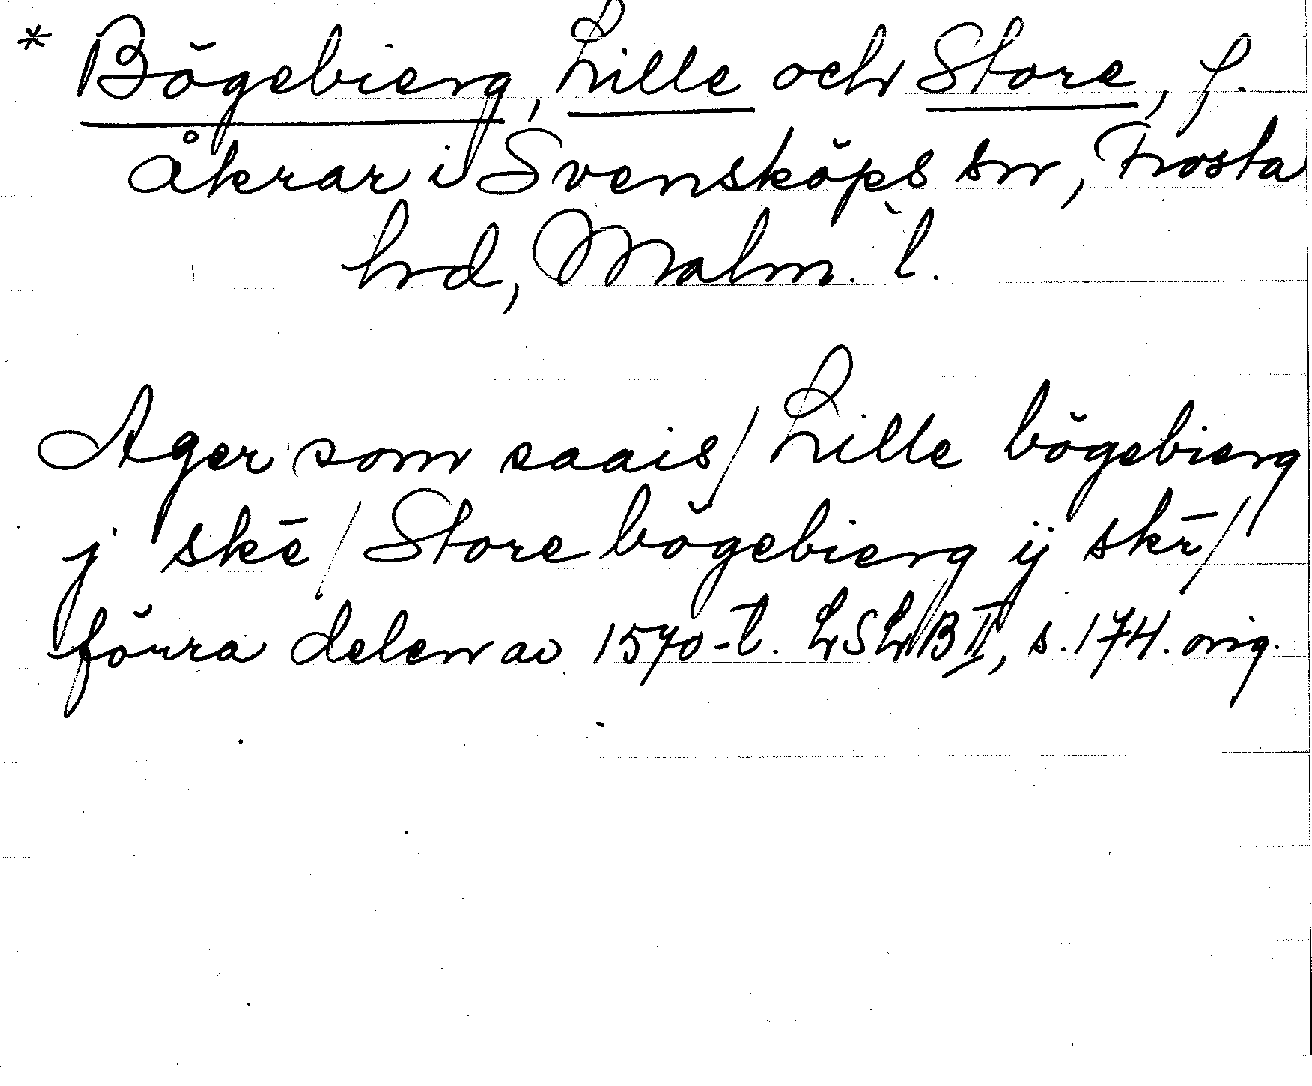 * Bögebierg, Lille och Store, f.
åkrar i Svensköps sn, Frosta
hd, Malm. l.
Ager som saais / Lille bögebierg
j skē / Store bögebierg ij skr̄ /
förra delen av 1570-t. LSLB II, s. 174. orig.